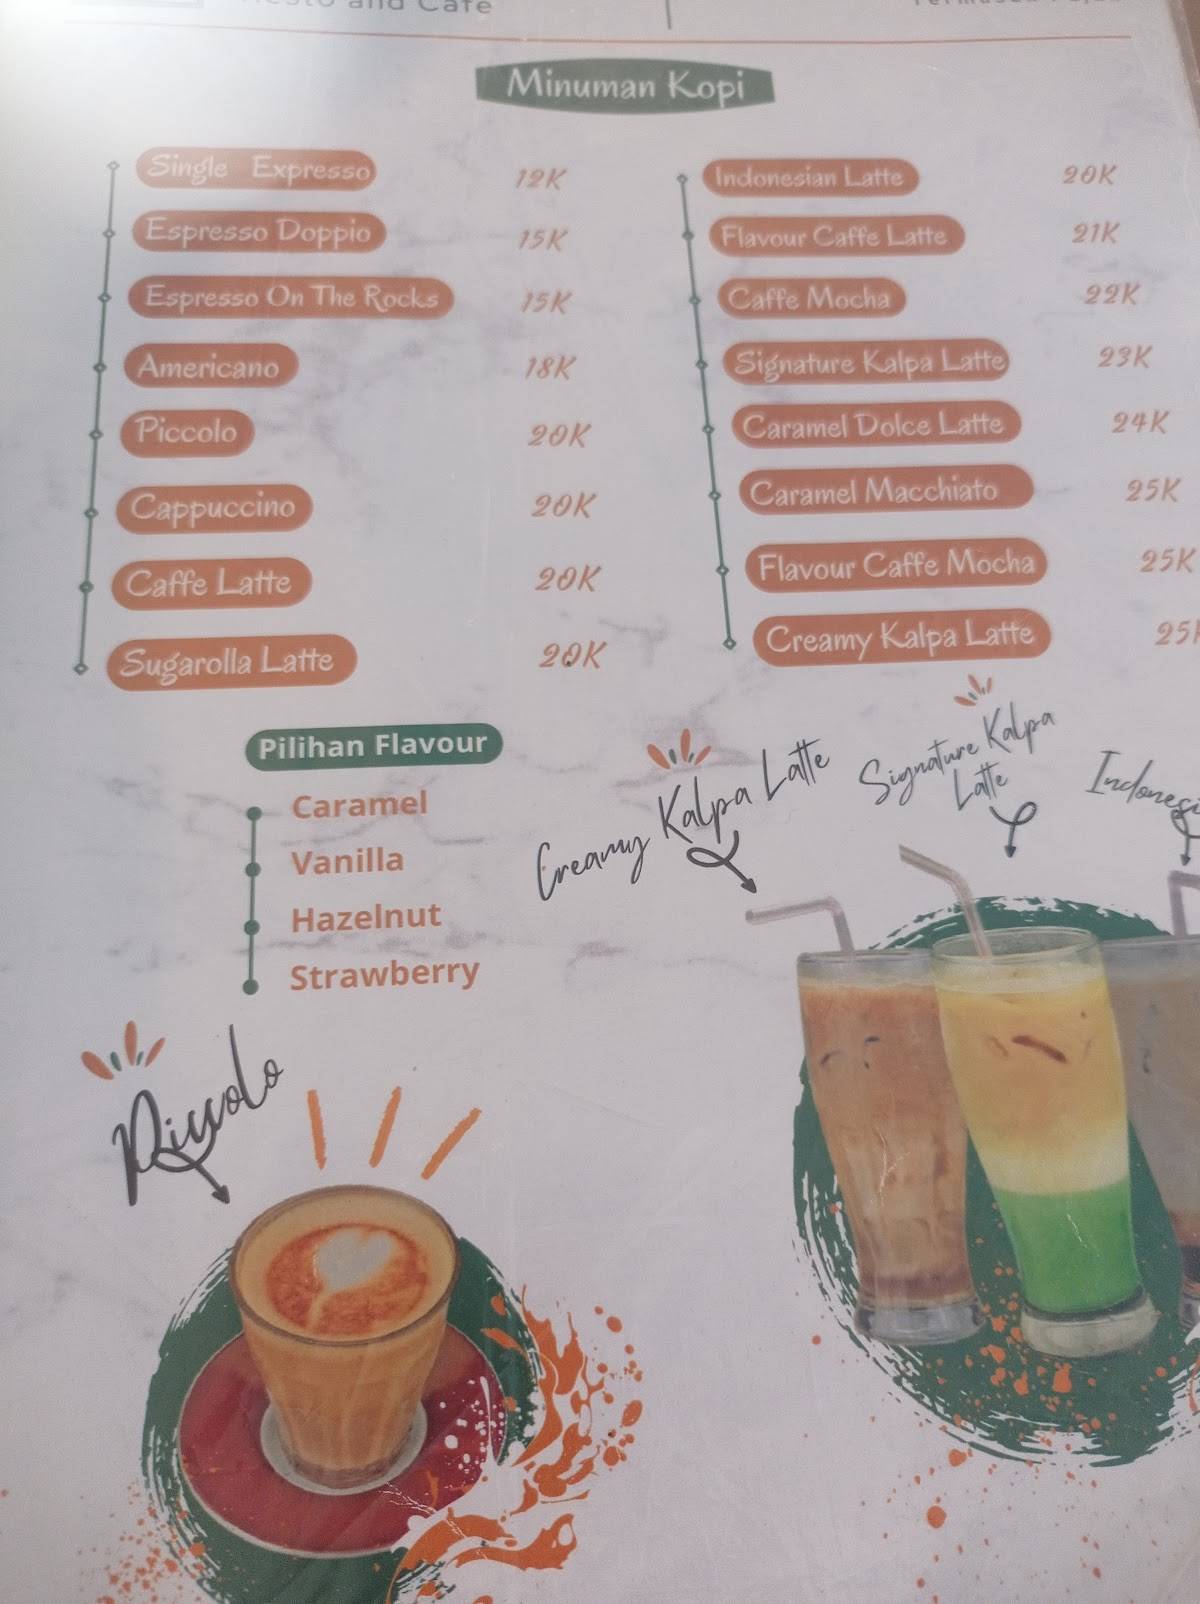 and Cafe
Minuman Kopi
Single Expresso 12K
Espresso Doppio 15K
Espresso On The Rocks 15K
Americano 18K
Piccolo 20K
Cappuccino 20K
Caffe Latte 20K
Sugarolla Latte 20K
Indonesian Latte 20K
Flavour Caffe Latte 21K
Caffe Mocha 22K
Signature Kalpa Latte 23K
Caramel Dolce Latte 24K
Caramel Macchiato 25K
Flavour Caffe Mocha 25K
Creamy Kalpa Latte 25K
Pilihan Flavour
Caramel
Vanilla
Hazelnut
Strawberry
Creamy Kalpa Latte
Signature Kalpa
Latte
Indonesi
Piccolo